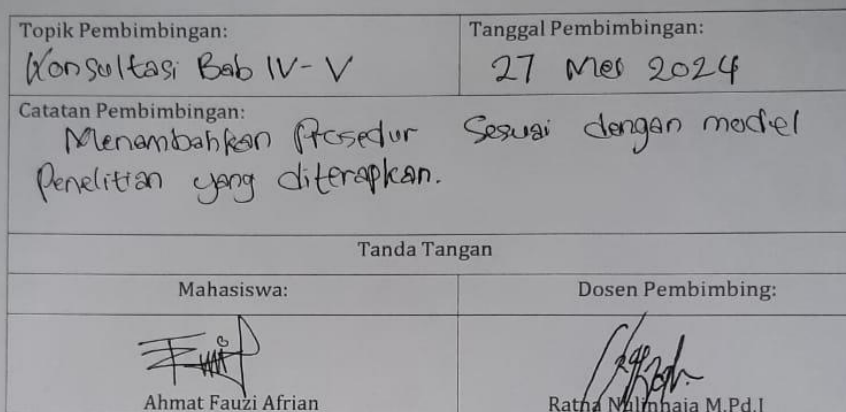 Topik Pembimbingan:
Konsultasi Bab IV - V
Tanggal Pembimbingan:
27 Mei 2024
Catatan Pembimbingan:
Menambahkan Prosedur Sesuai dengan model
Penelitian yang diterapkan.
Tanda Tangan
Mahasiswa:
Dosen Pembimbing:
Ahmat Fauzi Afrian
Ratna M.Pd.I